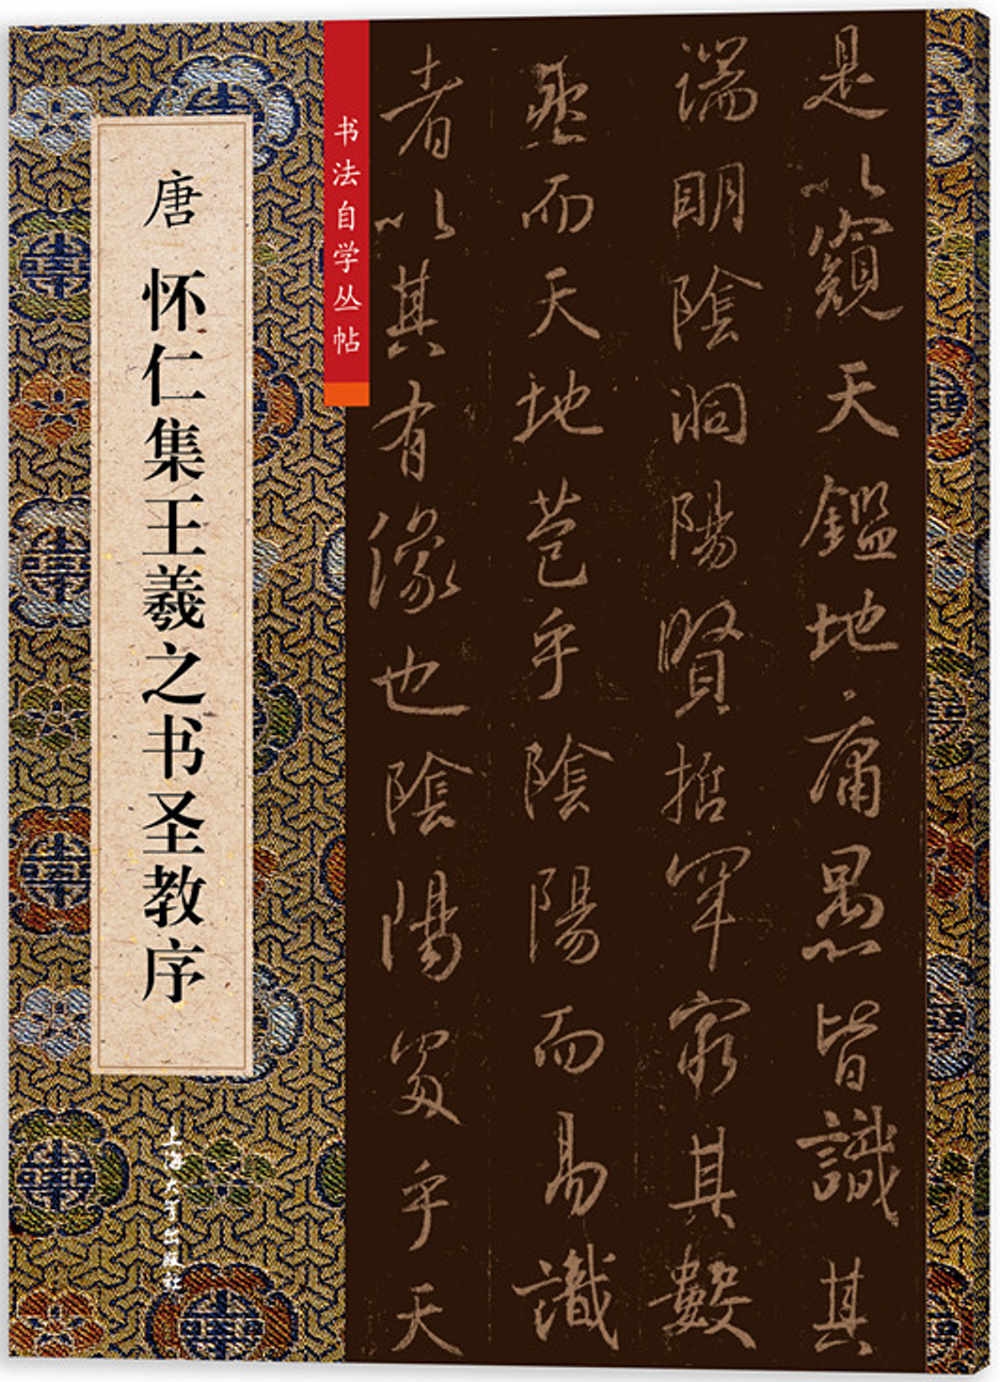 是以窺天鑑地庸愚皆識其
端明陰洞陽賢哲罕窮其數
然而天地苞乎陰陽而易識
者以其有像也陰陽處乎天
书法自学丛帖
唐 怀仁集王羲之书圣教序
上海大学出版社